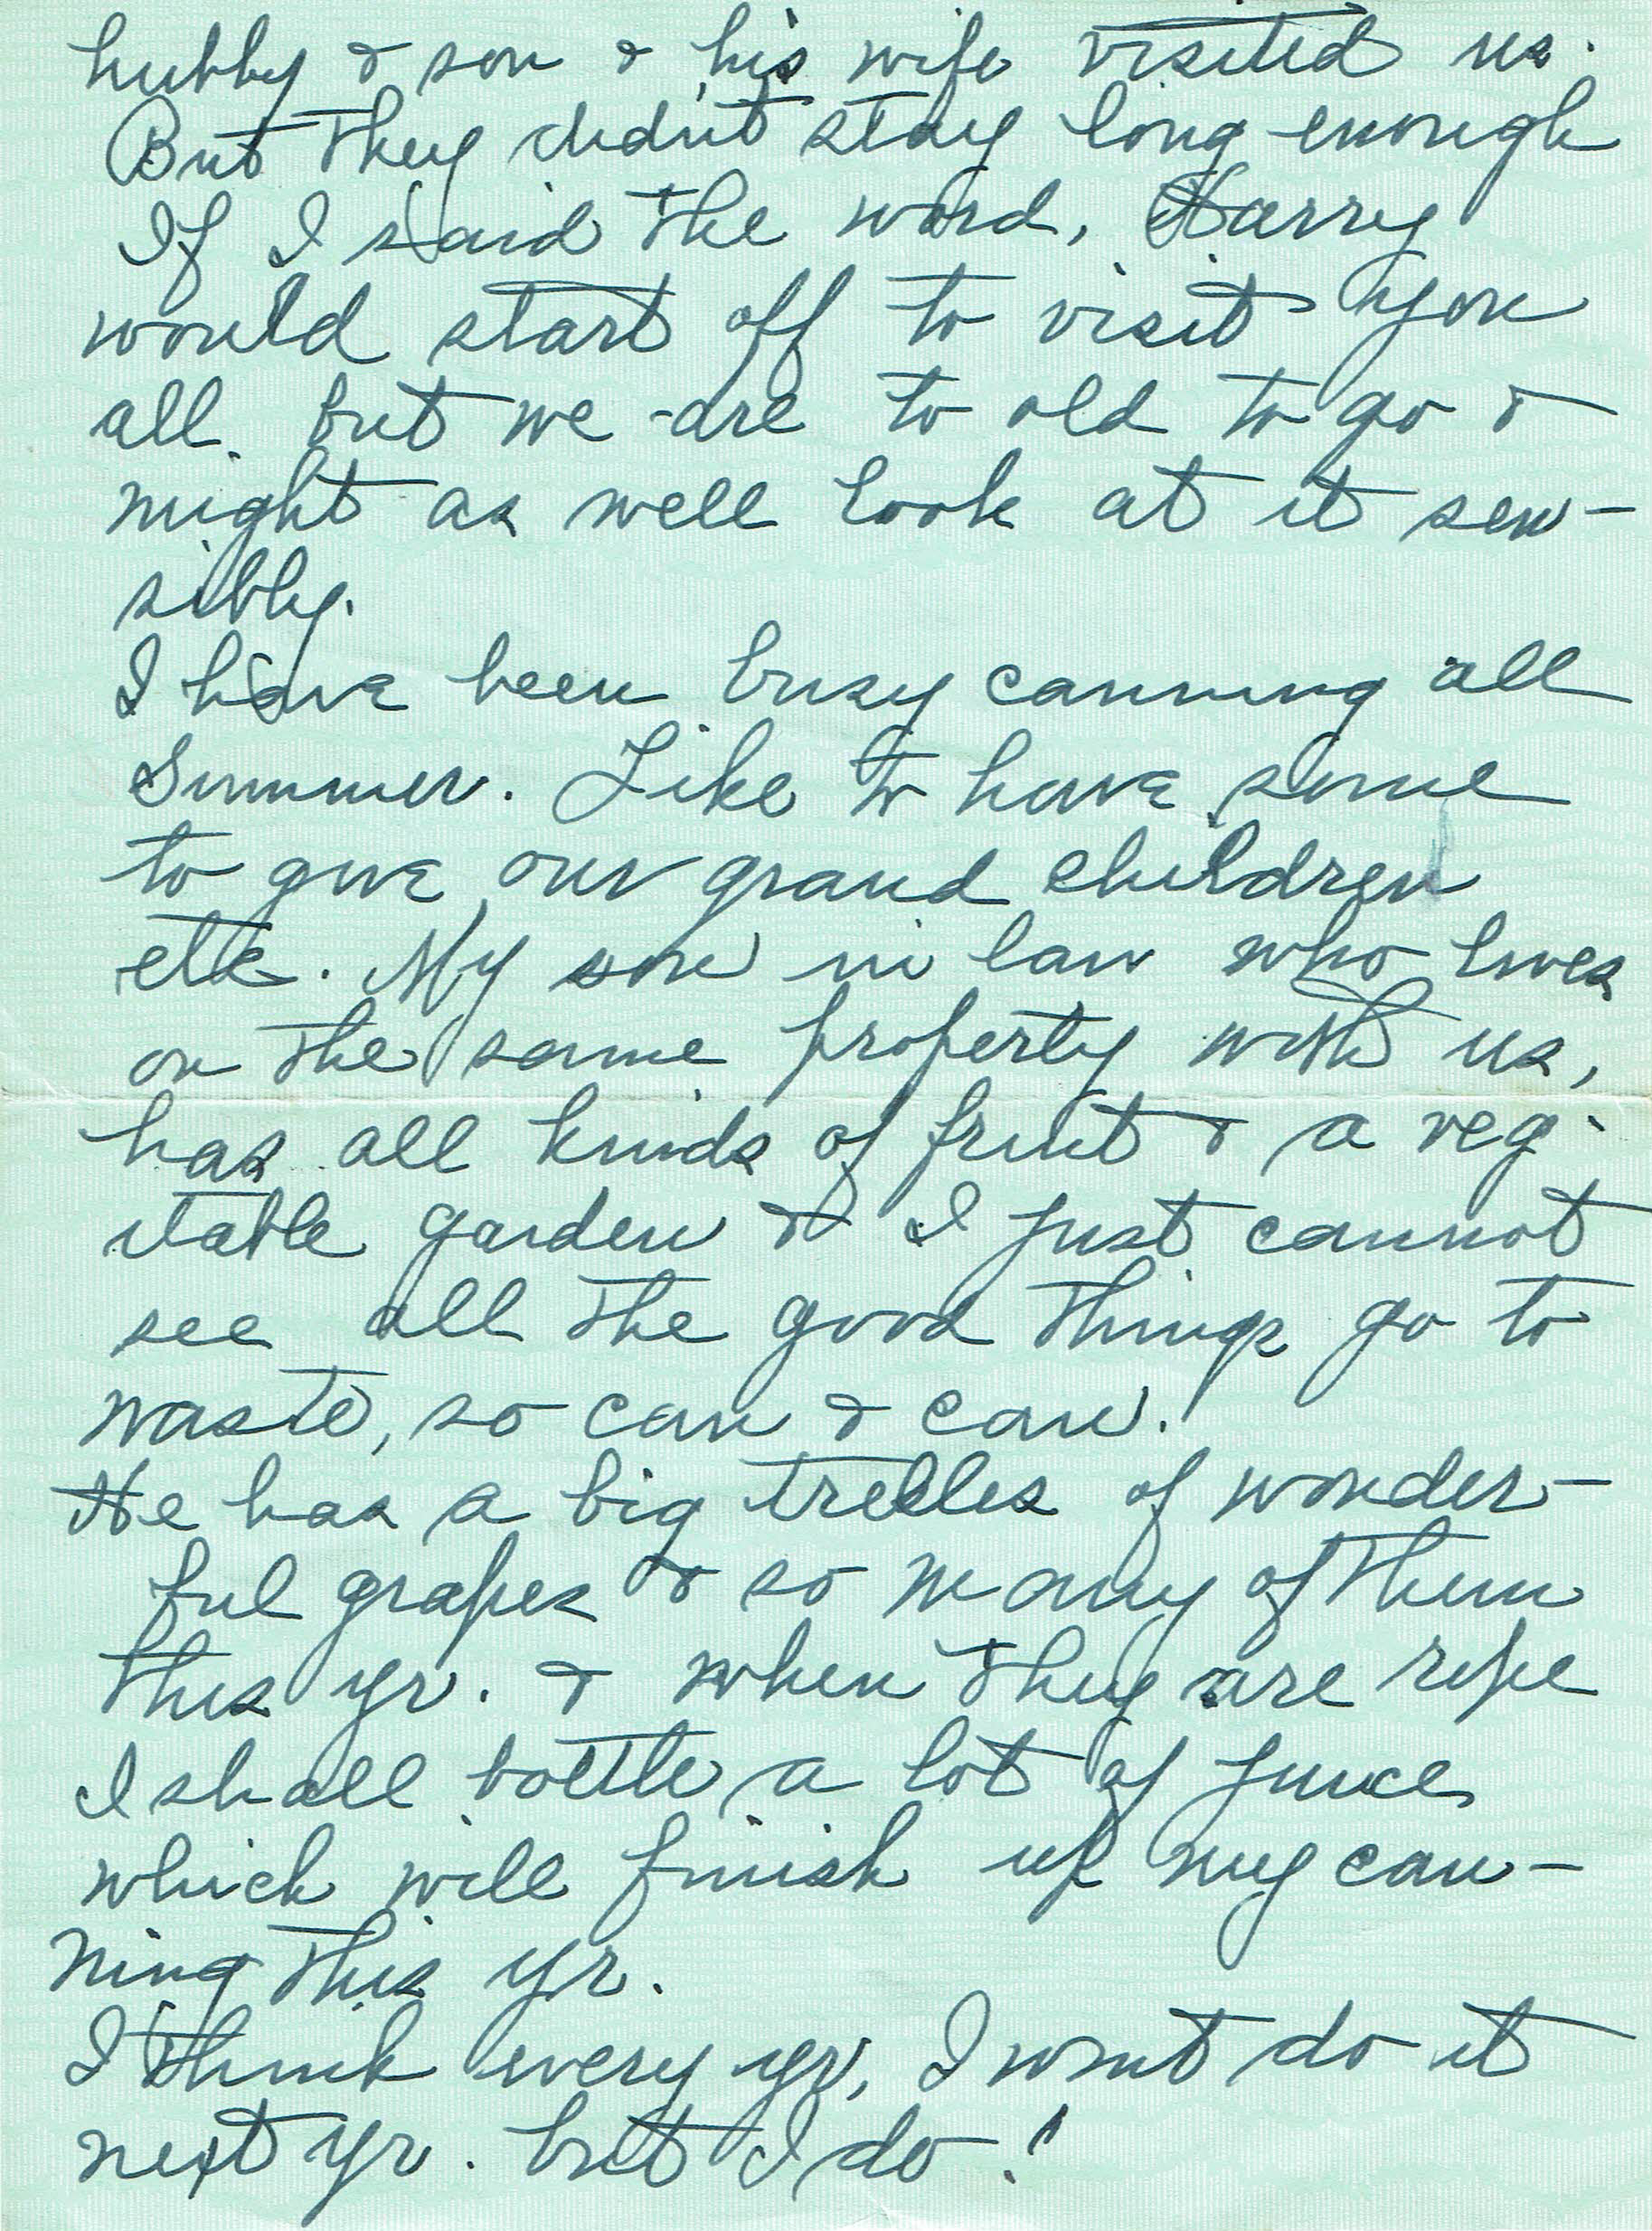 hubby & son & his wife visited us.
But they didn't stay long enough
If I said the word, Harry
would start off to visit you
all. but we are to old to go &
might as well look at it sen-
sibly.
I have been busy canning all
Summer. Like to have some
to give our grand children
etc. My son in law who lives
on the same property with us,
has all kinds of fruit & a veg-
itable garden & I just cannot
see all the good things go to
waste, so can & can.
He has a big trelles of wonder-
ful grapes & so many of them
this yr. & when they are ripe
I shall bottle a lot of juice
which will finish up my can-
ning this yr.
I think every yr, I wont do it
next yr. but I do!